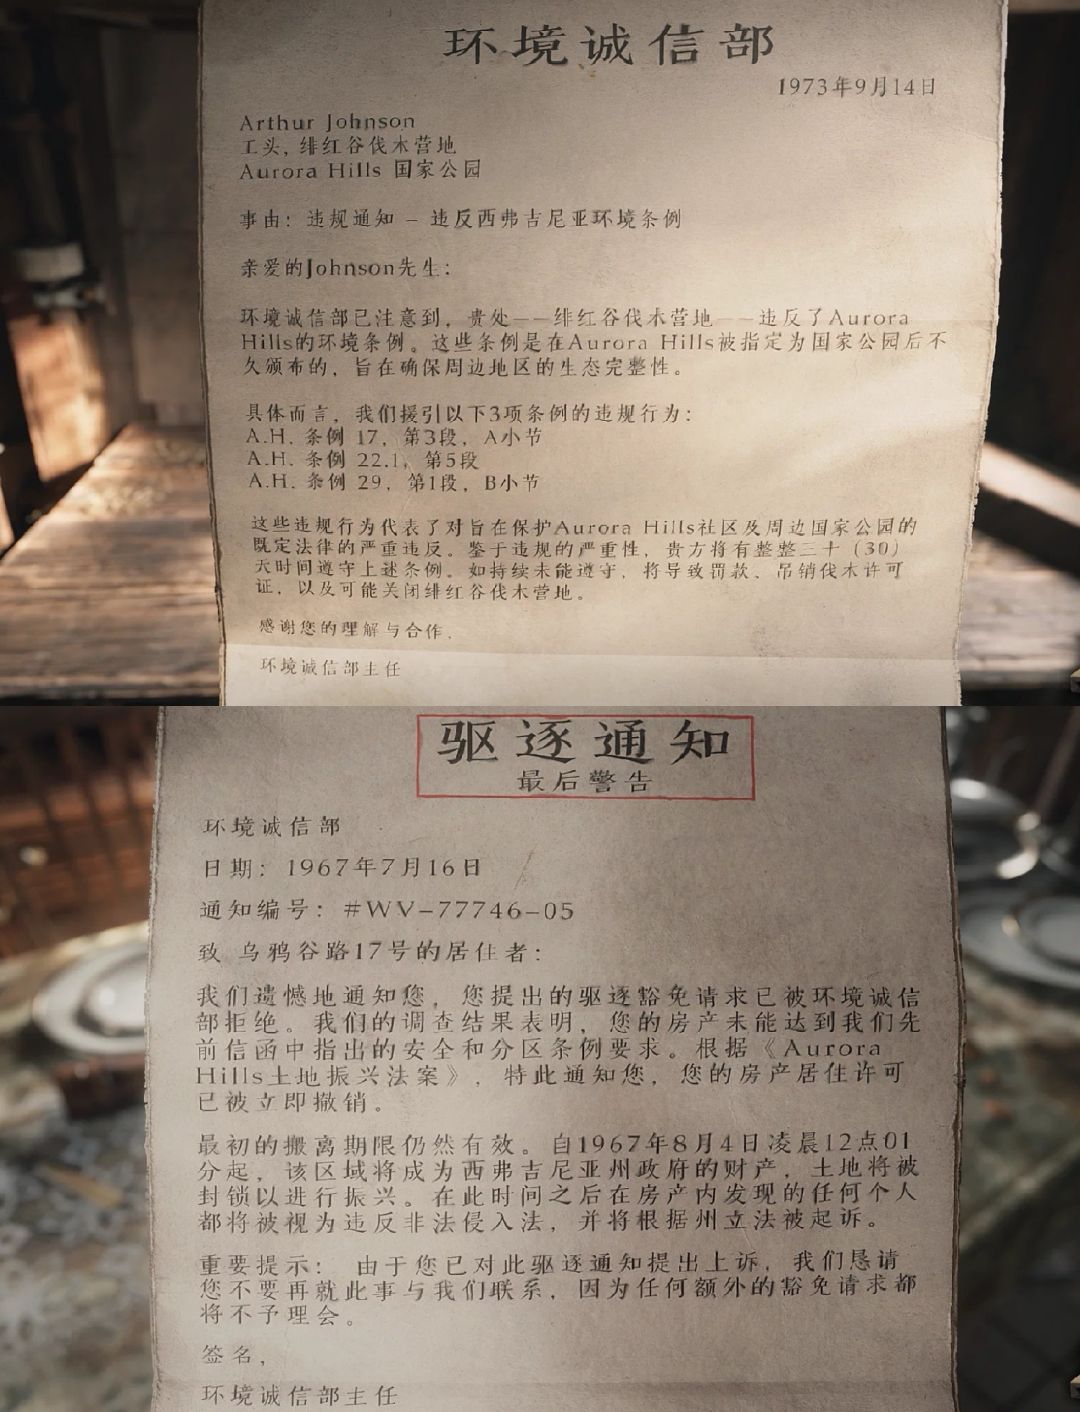 环境诚信部
1973年9月14日
Arthur Johnson
工头, 绯红谷伐木营地
Aurora Hills 国家公园
事由: 违规通知 – 违反西弗吉尼亚环境条例
亲爱的Johnson先生:
环境诚信部已注意到, 贵处——绯红谷伐木营地——违反了Aurora
Hills的环境条例。这些条例是在Aurora Hills被指定为国家公园后不
久颁布的, 旨在确保周边地区的生态完整性。
具体而言, 我们援引以下3项条例的违规行为:
A.H. 条例 17, 第3段, A小节
A.H. 条例 22.1, 第5段
A.H. 条例 29, 第1段, B小节
这些违规行为代表了对旨在保护Aurora Hills社区及周边国家公园的
既定法律的严重违反。鉴于违规的严重性, 贵方将有整整三十 (30)
天时间遵守上述条例。如持续未能遵守, 将导致罚款、吊销伐木许可
证, 以及可能关闭绯红谷伐木营地。
感谢您的理解与合作,
环境诚信部主任
驱逐通知
最后警告
环境诚信部
日期: 1967年7月16日
通知编号: #WV-77746-05
致 乌鸦谷路17号的居住者:
我们遗憾地通知您, 您提出的驱逐豁免请求已被环境诚信
部拒绝。我们的调查结果表明, 您的房产未能达到我们先
前信函中指出的安全和分区条例要求。根据《Aurora
Hills土地振兴法案》, 特此通知您, 您的房产居住许可
已被立即撤销。
最初的搬离期限仍然有效。自1967年8月4日凌晨12点01
分起, 该区域将成为西弗吉尼亚州政府的财产, 土地将被
封锁以进行振兴。在此时间之后在房产内发现的任何个人
都将被视为违反非法侵入法, 并将根据州立法被起诉。
重要提示: 由于您已对此驱逐通知提出上诉, 我们恳请
您不要再就此事与我们联系, 因为任何额外的豁免请求都
将不予理会。
签名,
环境诚信部主任